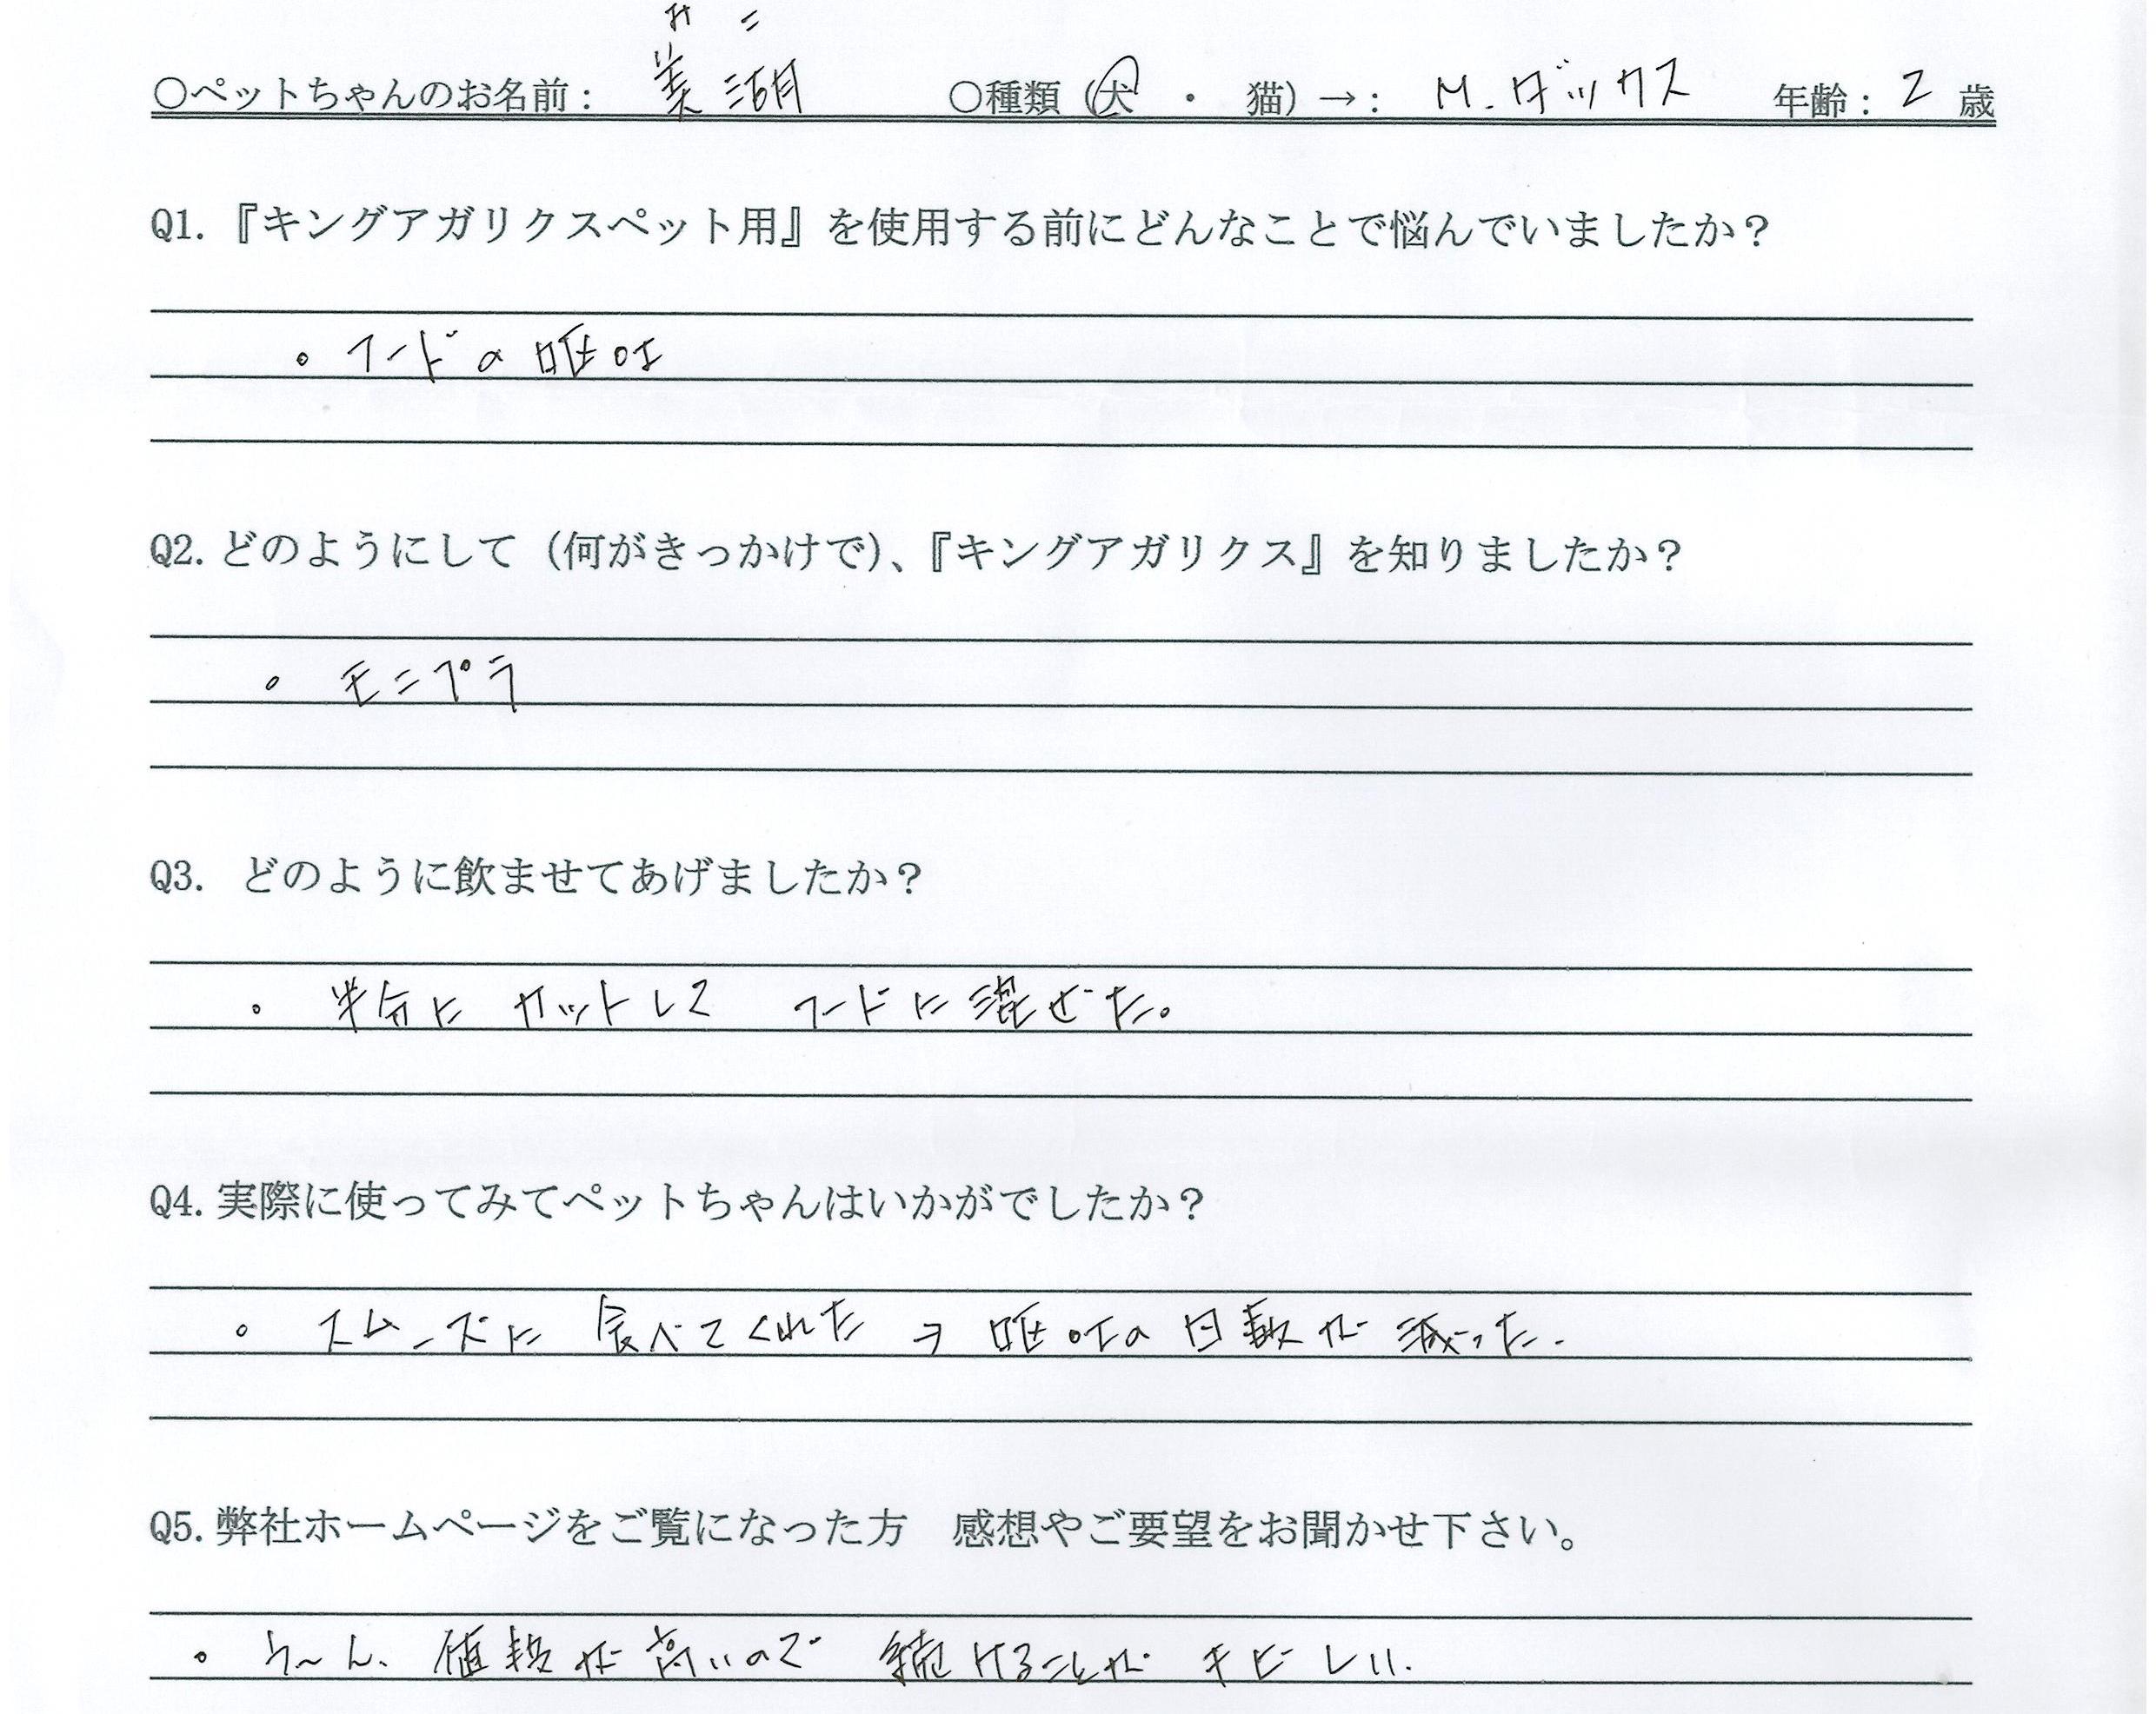 みこ
○ペットちゃんのお名前： 美湖 ○種類（犬 ・ 猫）→： M.ダックス 年齢： 2 歳
Q1.『キングアガリクスペット用』を使用する前にどんなことで悩んでいましたか？
・フードの嘔吐
Q2.どのようにして（何がきっかけで）、『キングアガリクス』を知りましたか？
・モニプラ
Q3. どのように飲ませてあげましたか？
・半分に カットして フードに混ぜた。
Q4.実際に使ってみてペットちゃんはいかがでしたか？
・スムーズに 食べてくれた → 嘔吐の 日数が 減った.
Q5.弊社ホームページをご覧になった方 感想やご要望をお聞かせ下さい。
・う〜ん、値段が高いので 続けることが キビしい.